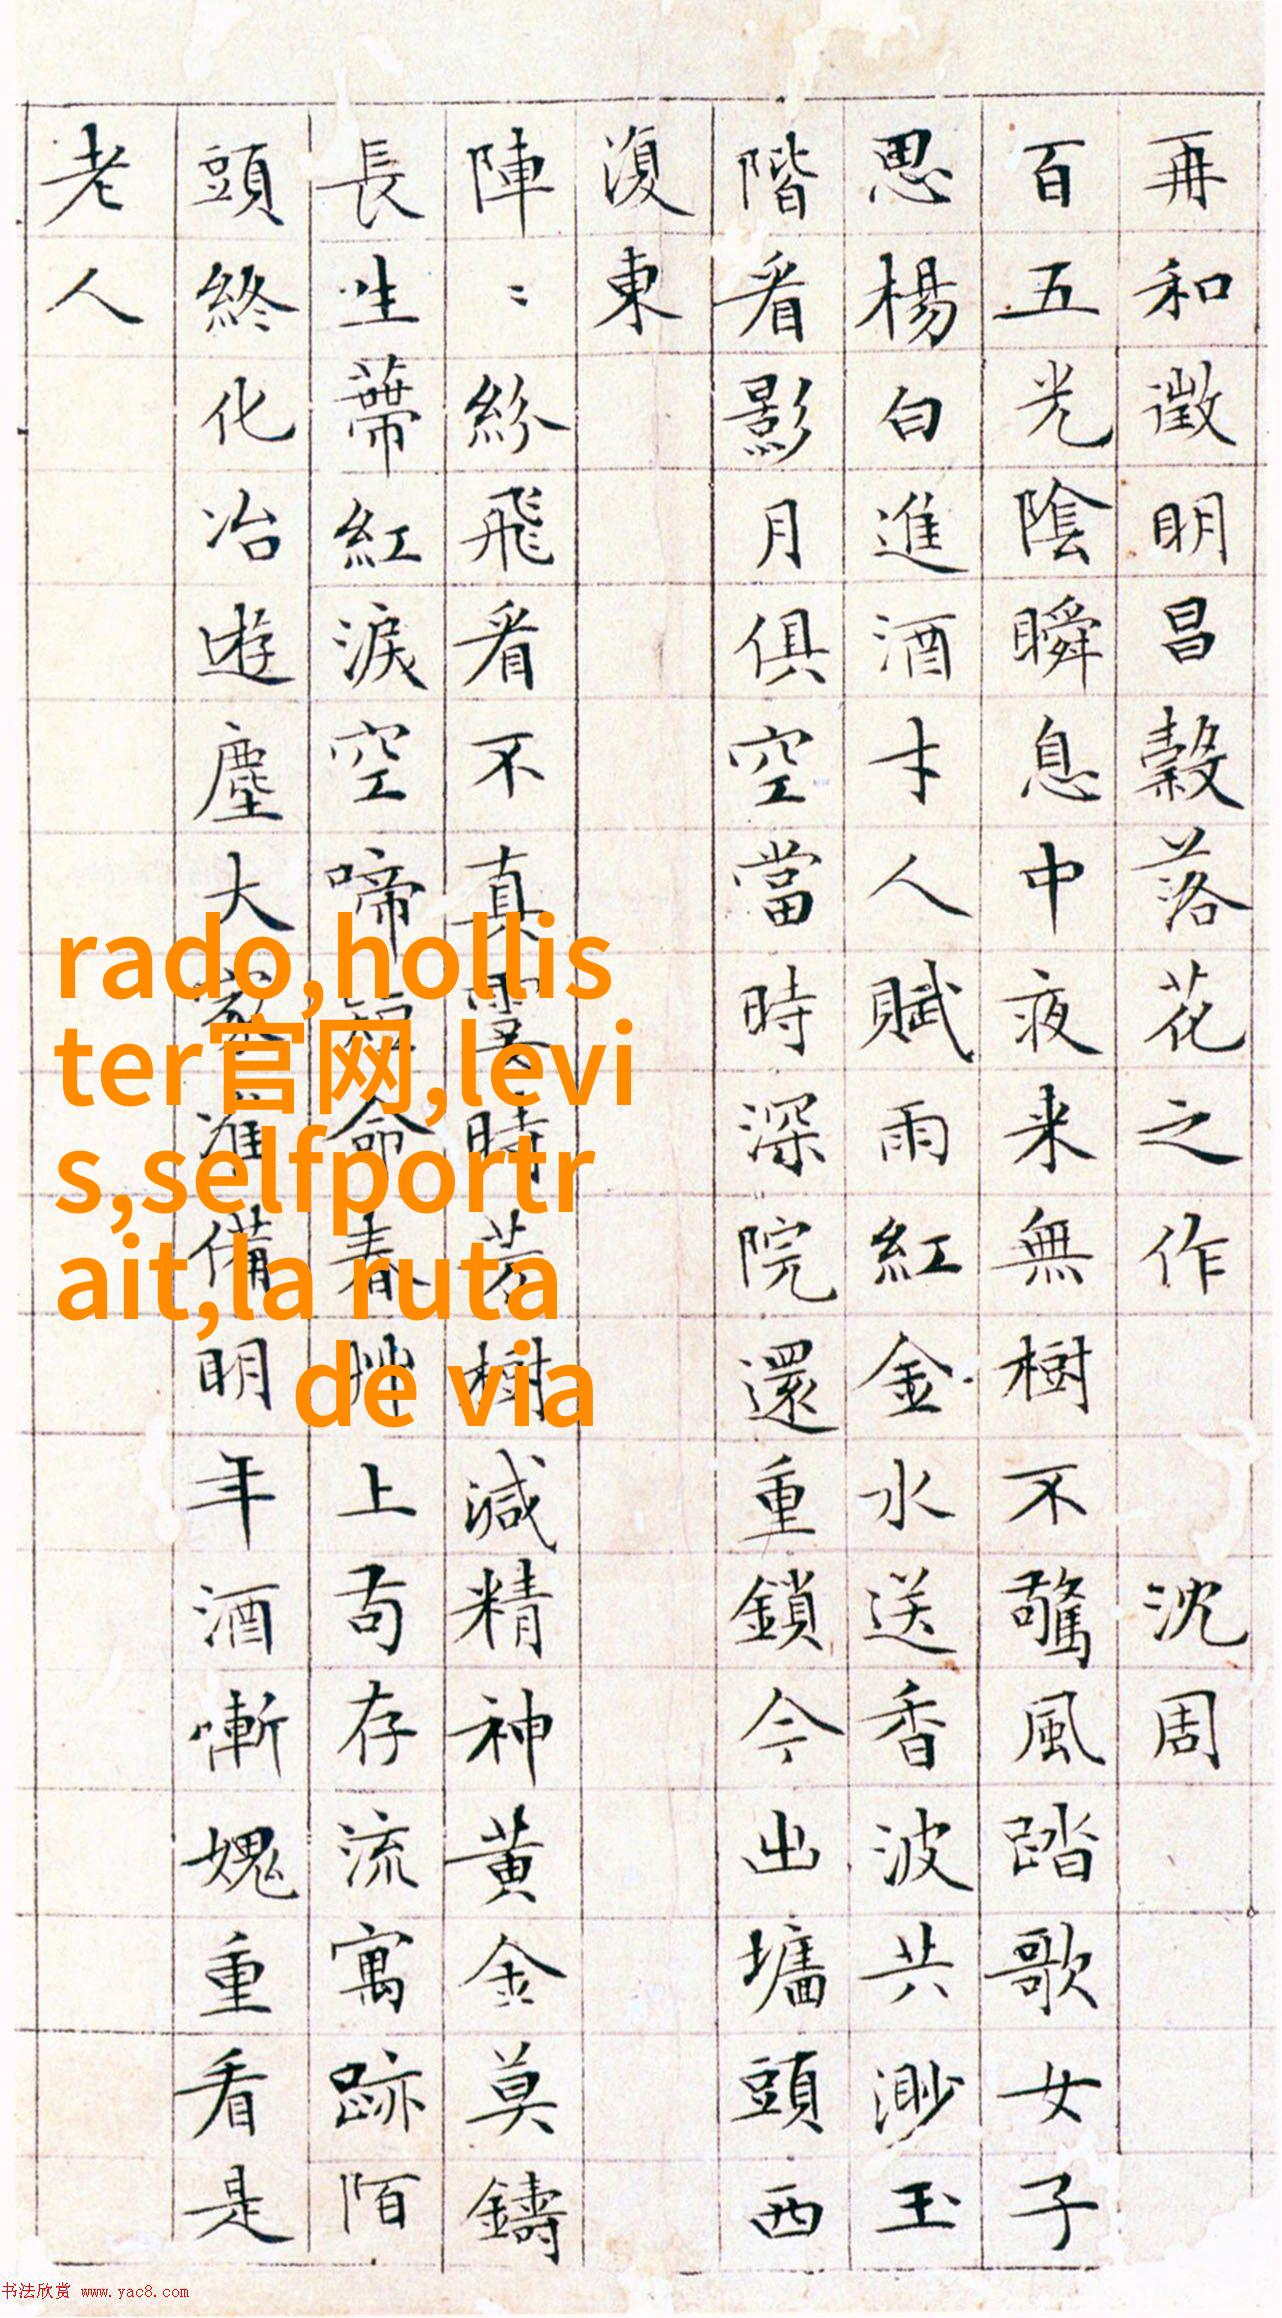 再和徵明昌穀落花之作 沈周
百五光陰瞬息中夜来無樹不驚風踏歌女子
思楊白進酒才人賦雨紅金水送香波共渺玉
階看影月俱空當時深院還重鎖今出墻頭西
復東
陣〻紛飛看不真霎時芳樹減精神黃金莫鑄
長生蔕紅淚空啼短命春上苟存流寓跡陌
頭終化冶遊塵大家準備明年酒慚媿重看是
老人
rado,hollis
ter官网,levi
s,selfportr
ait,la ruta
de via
书法欣赏 www.yac8.com